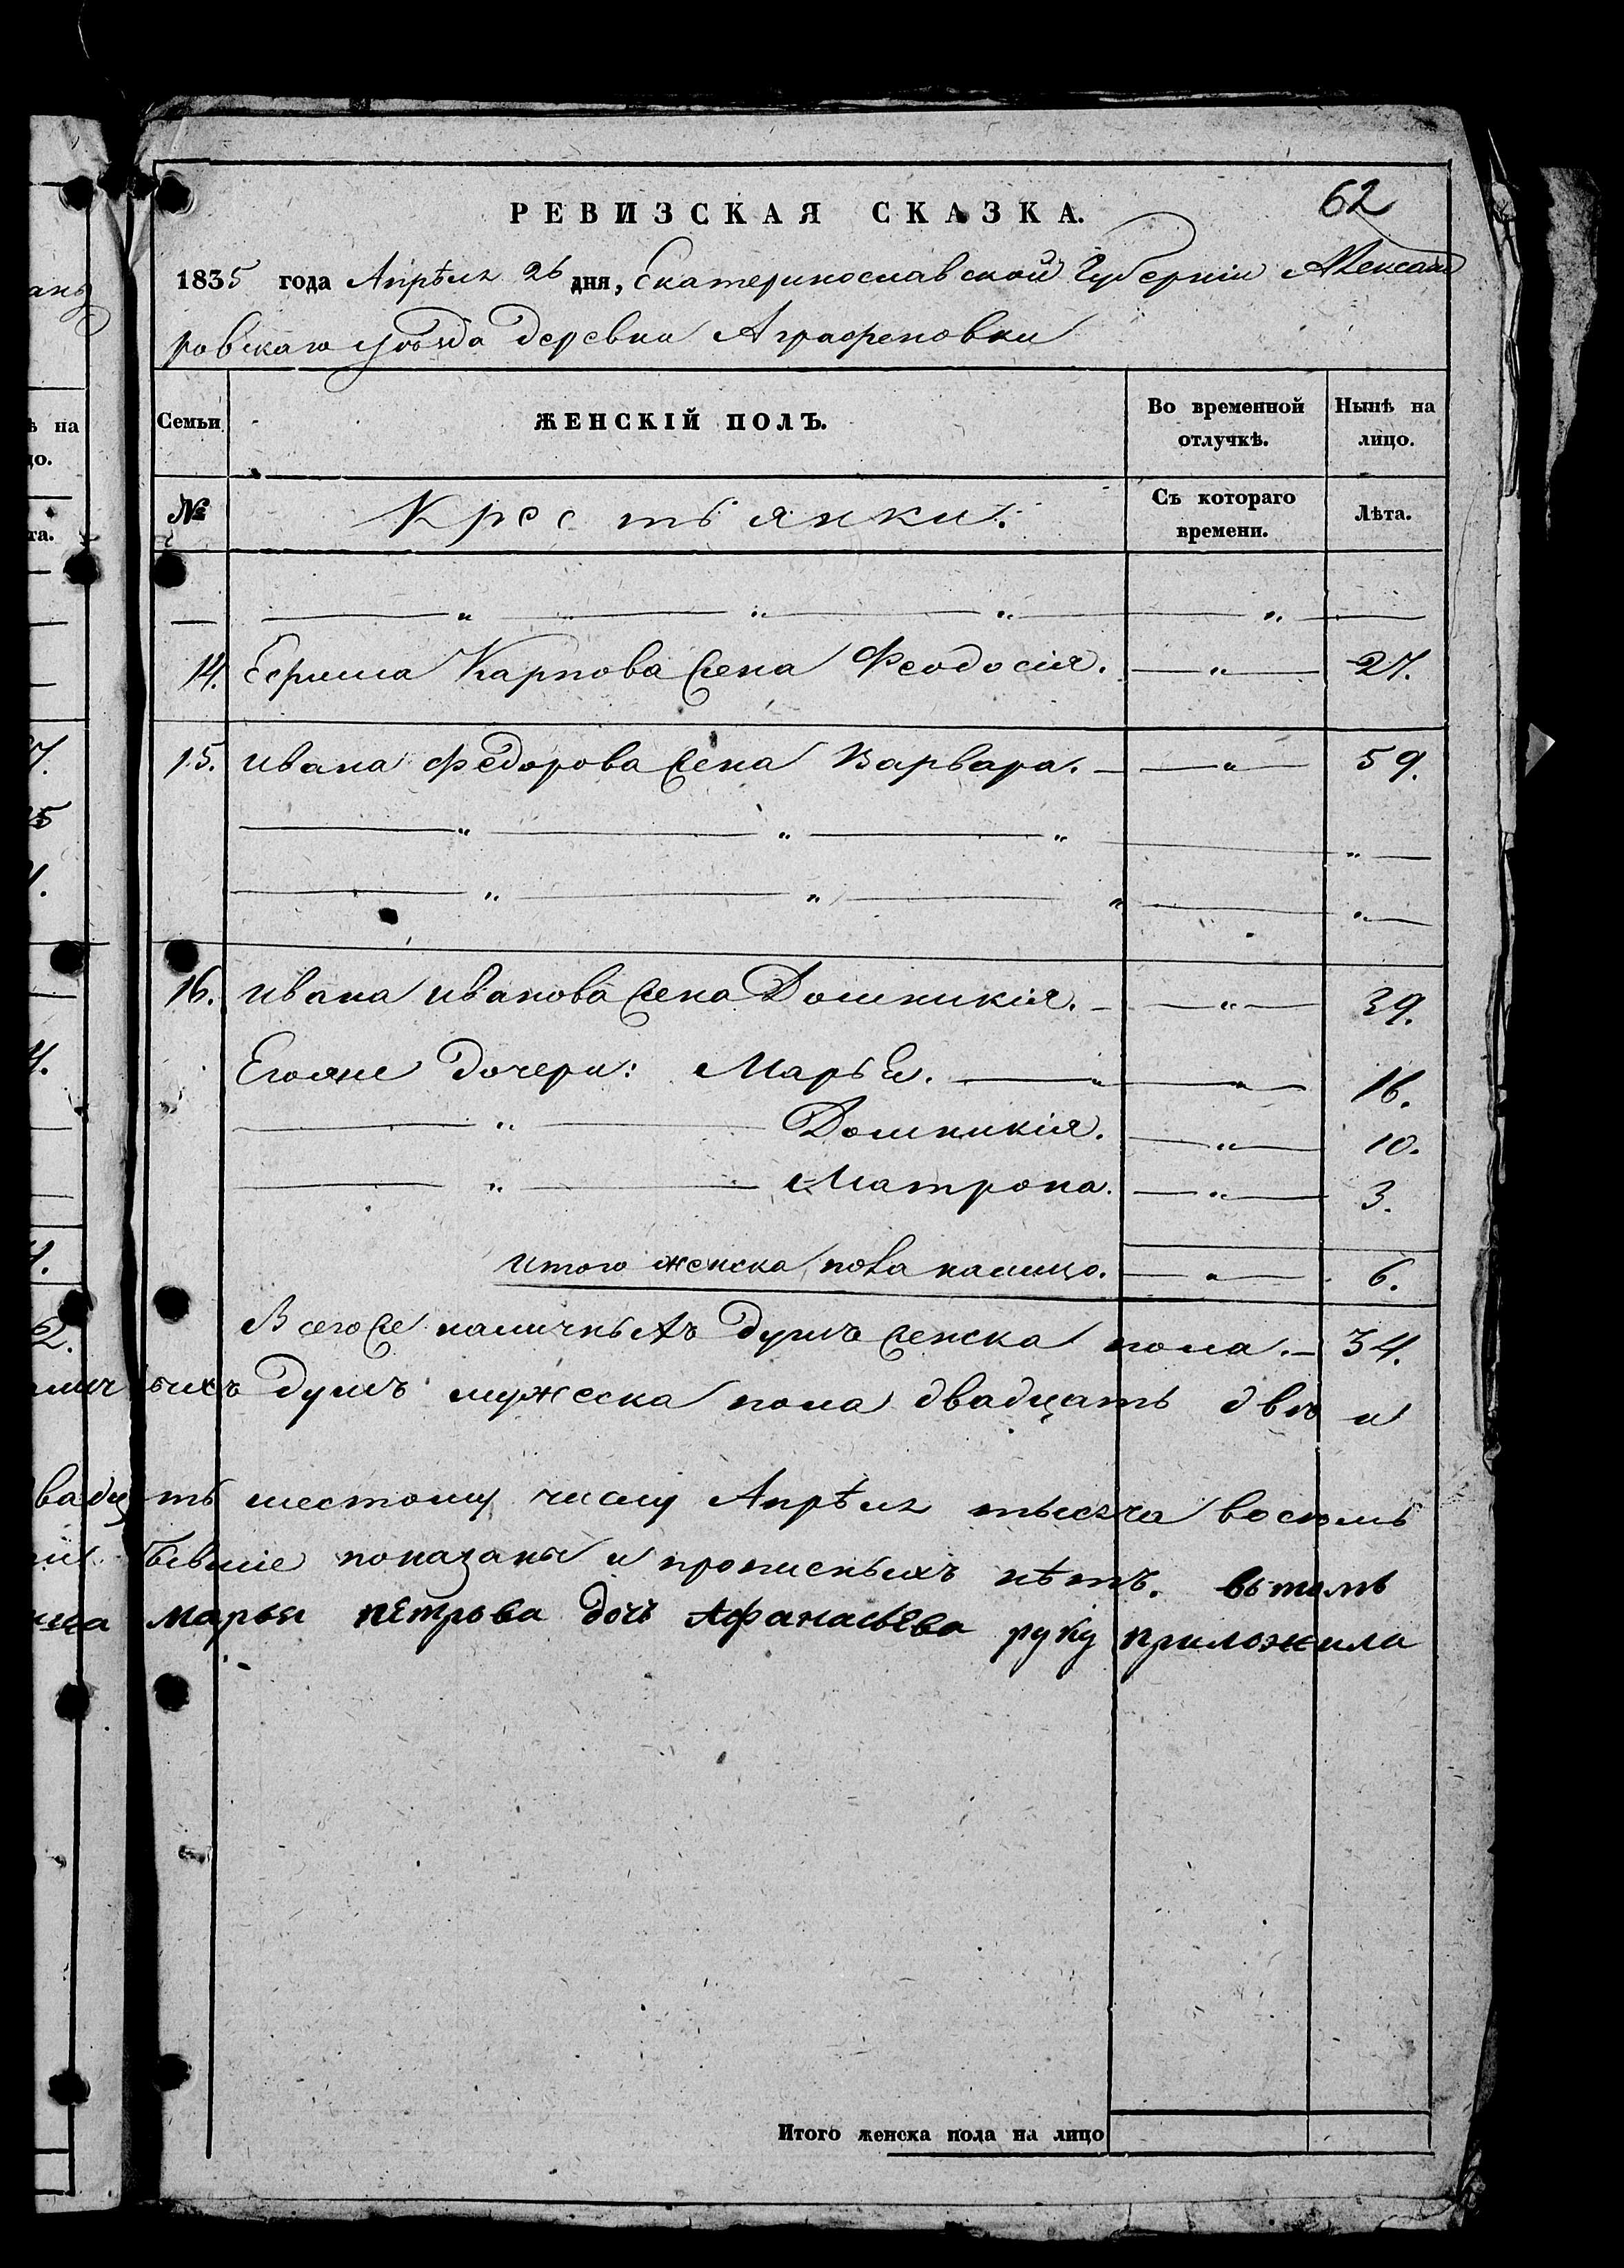 62
РЕВИЗСКАЯ СКАЗКА.
1835 года Апрѣля 26 дня, Екатеринославской Губерніи Александ
ровскаго уѣзда деревни Аграфеновки
Семьи
ЖЕНСКІЙ ПОЛЪ.
Во временной отлучкѣ.
Нынѣ на лицо.
№
Крестьянки.
Съ котораго времени.
Лѣта.
— " — " — " — " —
14. Ефима Карпова жена Феодосія. — " — 27.
15. Ивана Федорова жена Варвара. — " — 59.
— " — " — " — " —
— " — " — " — " —
16. Ивана Иванова жена Домникія. — " — 39.
Егоже дочери: Марья. — " — " — 16.
— " — Домникія. — " — 10.
— " — Матрона. — " — 3.
Итого женска пола налицо. — " — 6.
Всегоже наличныхъ душъ женска пола. — 34.
ныхъ душъ мужеска пола двадцать двѣ и
вадцать шестому числу Апрѣля тысяча восемь
бывшіе показаны и прописныхъ нѣтъ. вътомъ
Марья Петрова дочь Афанасьева руку приложила
Итого женска пола на лицо